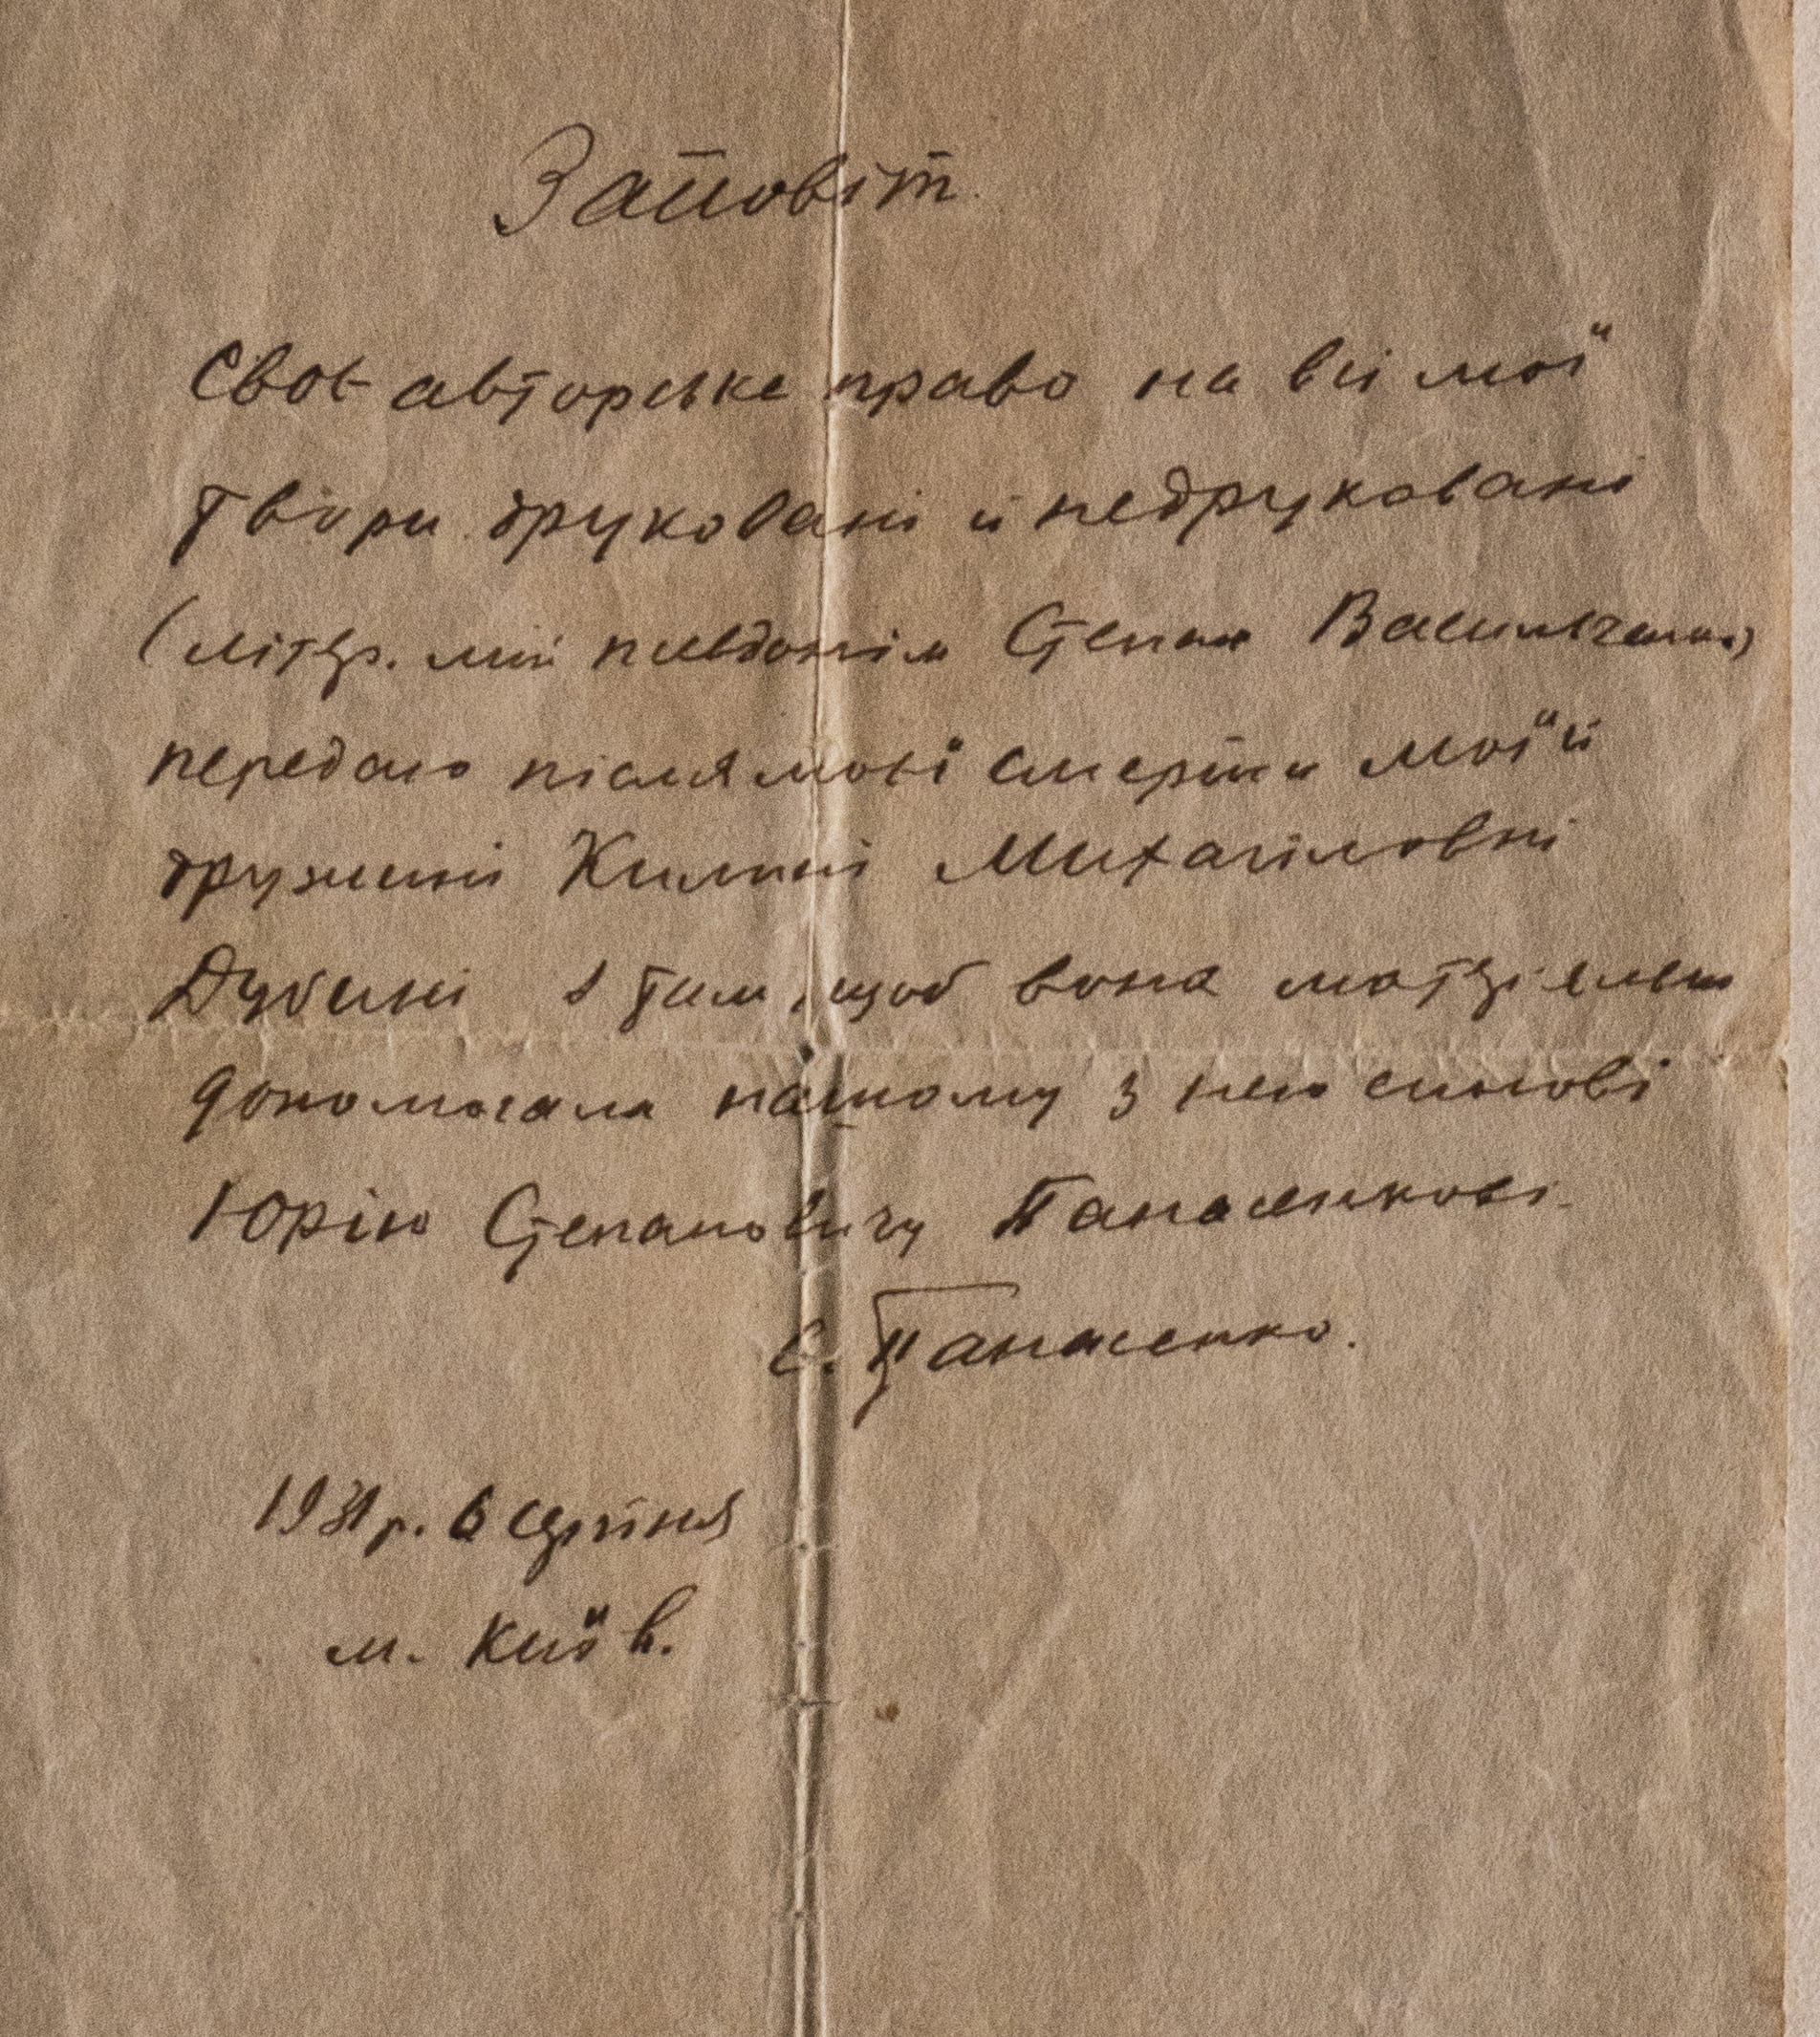 Заповіт.
Своє авторське право на всі мої
твори друковані й недруковані
(літер. мій псевдонім Степан Васильченко)
передаю після моєї смерти моїй
дружині Килині Михайловні
Дубині з тим, щоб вона матеріяльно
допомагала нашому з нею синові
Юрію Степановичу Панасенкові.
С. Панасенко.
1931 р. 6 серпня
м. Київ.